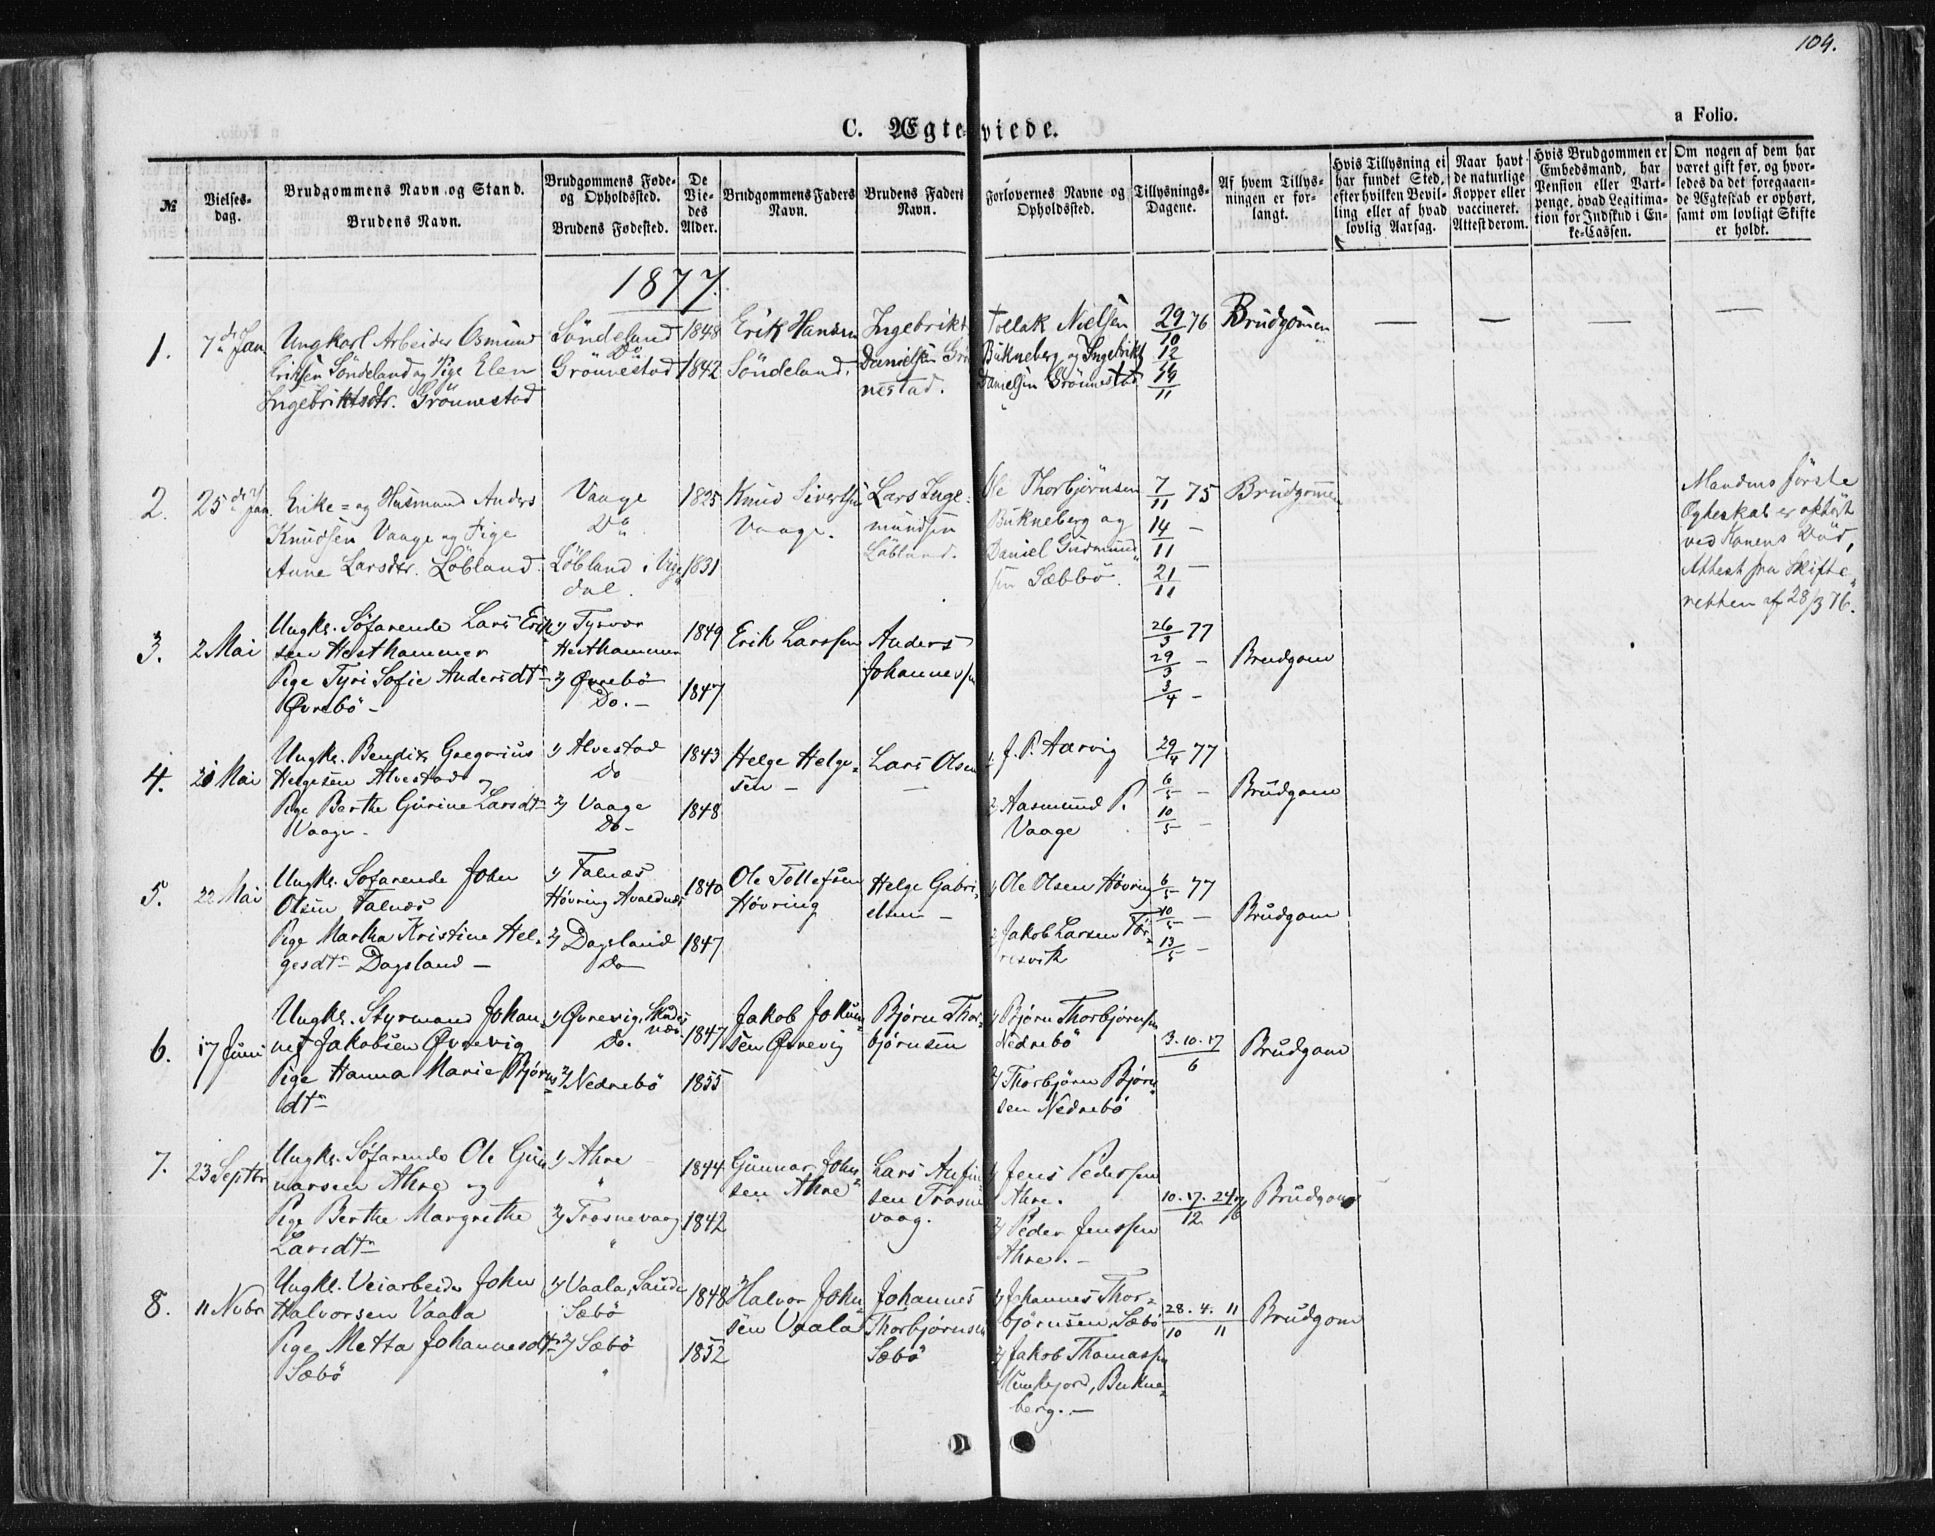 104.
C. Ægteviede.
a Folio.
№
Vielses-
dag.
Brudgommens Navn og Stand.
Brudens Navn.
Brudgommens Føde-
og Opholdssted.
Brudens Fødested.
De
Vie-
des
Alder.
Brudgommens Faders
Navn.
Brudens Faders
Navn.
Forlovernes Navne og
Opholdssted.
Tillysnings-
Dagene.
Af hvem Tillys-
ningen er for-
langt.
Hvis Tillysning ei
har fundet Sted,
efter hvilken Bevil-
ling eller af hvad
lovlig Aarsag.
Naar havt
de naturlige
Kopper eller
vaccineret.
Attest derom.
Hvis Brudgommen er
Embedsmand, har
Pension eller Vart-
penge, hvad Legitima-
tion for Indskud i En-
ke-Cassen.
Om nogen af dem har
været gift før, og hvor-
ledes da det foregaaen-
de Ægteskab er ophørt,
samt om lovligt Skifte
er holdt.
1877.
1.
7de Jan
Ungkarl Arbeider Osmund
Eriksen Söndeland og Pige Elen
Ingebriktsdtr. Grönnestad
Söndeland
Do
Grönnestad
1848
1842
Erik Hansen
Söndeland.
Ingebrikt
Danielsen Grö
nestad.
Tollak Nielsen
Bukneberg og Ingebrikt
Danielsen Grönnestad
29/10 76
12/11
19/11
Brudgommen
— — — —
2.
25de Jan
Enke= og Husmand Anders
Knudsen Vaage og Pige
Anne Larsdtr. Löbland
Vaage
Do
Löbland i Vige
dal.
1825
1831
Knud Sivertsen
Vaage.
Lars Inge-
mundsen
Löbland.
Ole Thorbjörnsen
Bukneberg og
Daniel Gudmund
sen Sæbbö.
7/11 75
14/11 —
21/11 —
Brudgommen
Mandens förste
Egteskab er ophört
ved Konens Död,
Attest fra Skifte-
retten af 28/3 76.
3.
2 Mai
Ungk. Söfarende Lars Erik
sen Hesthammer
Pige Tyri Sofie Andersdtr
Øvrebö –
1) Tysvær
Hesthammer
2) Øvrebö
Do. –
1849
1847
Erik Larssen
Anders
Johannessen
26/3 77
29/3 –
3/4 –
Brudgom
4.
21 Mai
Ungk. Bendix Gregorius
Helgesen Alvestad og
Pige Berthe Gurine Larsdtr
Vaage –
1) Alvestad
Do
2) Vaage
Do –
1843
1848
Helge Helge-
sen –
Lars Olsen
—
1 J. P. Aarvig
2 Aasmund P.
Vaage
29/4 77
6/5 –
10/5 –
Brudgom
5.
22 Mai
Ungk. Søfarende John
Olsen Falnæs
Pige Martha Kristine Hel-
gesdtr Dagsland –
1) Falnæs
Høvring Avaldnæs
2) Dagsland
Do
1840
1847
Ole Tollefsen
Høvring
Helge Gabri-
elsen –
1) Ole Olsen Høvring
2 Jakob Larsen Tör-
resvik
6/5 77
10/5 –
13/5 –
Brudgom
6.
17 Juni
Ungk. Styrmand Johan-
nes Jakobsen Øvrevig
Pige Hanna Marie Björns
dtr
1) Øvrevig, Skudes
næs
Do.
2) Nedrebö
1847
1855
Jakob Jokum-
sen Øvrevig
Bjørn Thor-
bjørnsen
1) Bjørn Thorbjørnsen
Nedrebö
2) Thorbjörn Bjørn-
sen Nedrebö
3. 10. 17/6
Brudgom
7.
23 Septbr
Ungk. Söfarende Ole Gun
narsen Ahre og
Pige Berthe Margrethe
Larsdtr
1) Ahre
"
2) Trosnevaag
"
1844
1842
Gunnar John-
sen Ahre
Lars Anfin
sen Trosne
vaag.
1) Jens Pedersen
Ahre.
2) Peder Jenssen
Ahre. –
10. 17. 24/12 76
Brudgom
8.
11 Nvbr
Ungk. Veiarbeider John
Halvorsen Vaala
Pige Metta Johannesdtr
Sæbö
1) Vaala, Saude
Sæbö
2) Sæbö
"
1848
1852
Halvor John-
sen Vaala
Johannes
Thorbjørnsen
Sæbö
1) Johannes Thor-
bjørnsen, Sæbö
2) Jakob Thomassen
Munkejord, Bukne-
berg. –
28/10. 4. 11/11
Brudgom